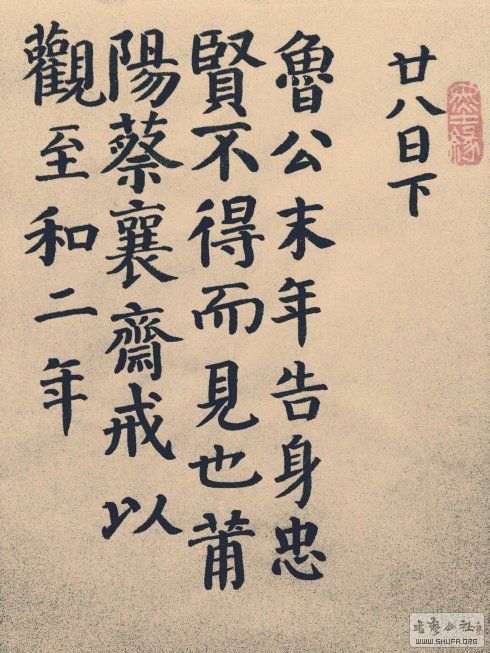 廿八日下
魯公末年告身忠
賢不得而見也莆
陽蔡襄齋戒以
觀至和二年
WWW.SHUFA.ORG